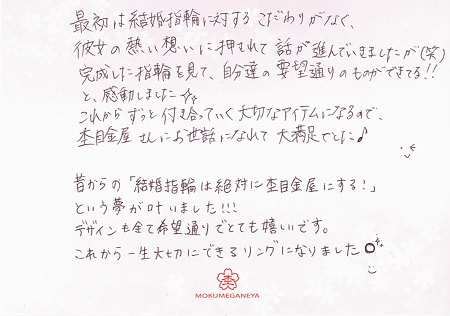 最初は結婚指輪に対するこだわりがなく、
彼女の熱い想いに押されて話が進んでいきましたが(笑)
完成した指輪を見て、自分達の要望通りのものができてる!!
と、感動しました☆
これからずっと付き合っていく大切なアイテムになるので、
杢目金屋さんにお世話になれて大満足でした♪
昔からの「結婚指輪は絶対に杢目金屋にする!」
という夢が叶いました!!!
デザインも全て希望通りでとても嬉しいです。
これから一生大切にできるリングになりました
MOKUMEGANEYA